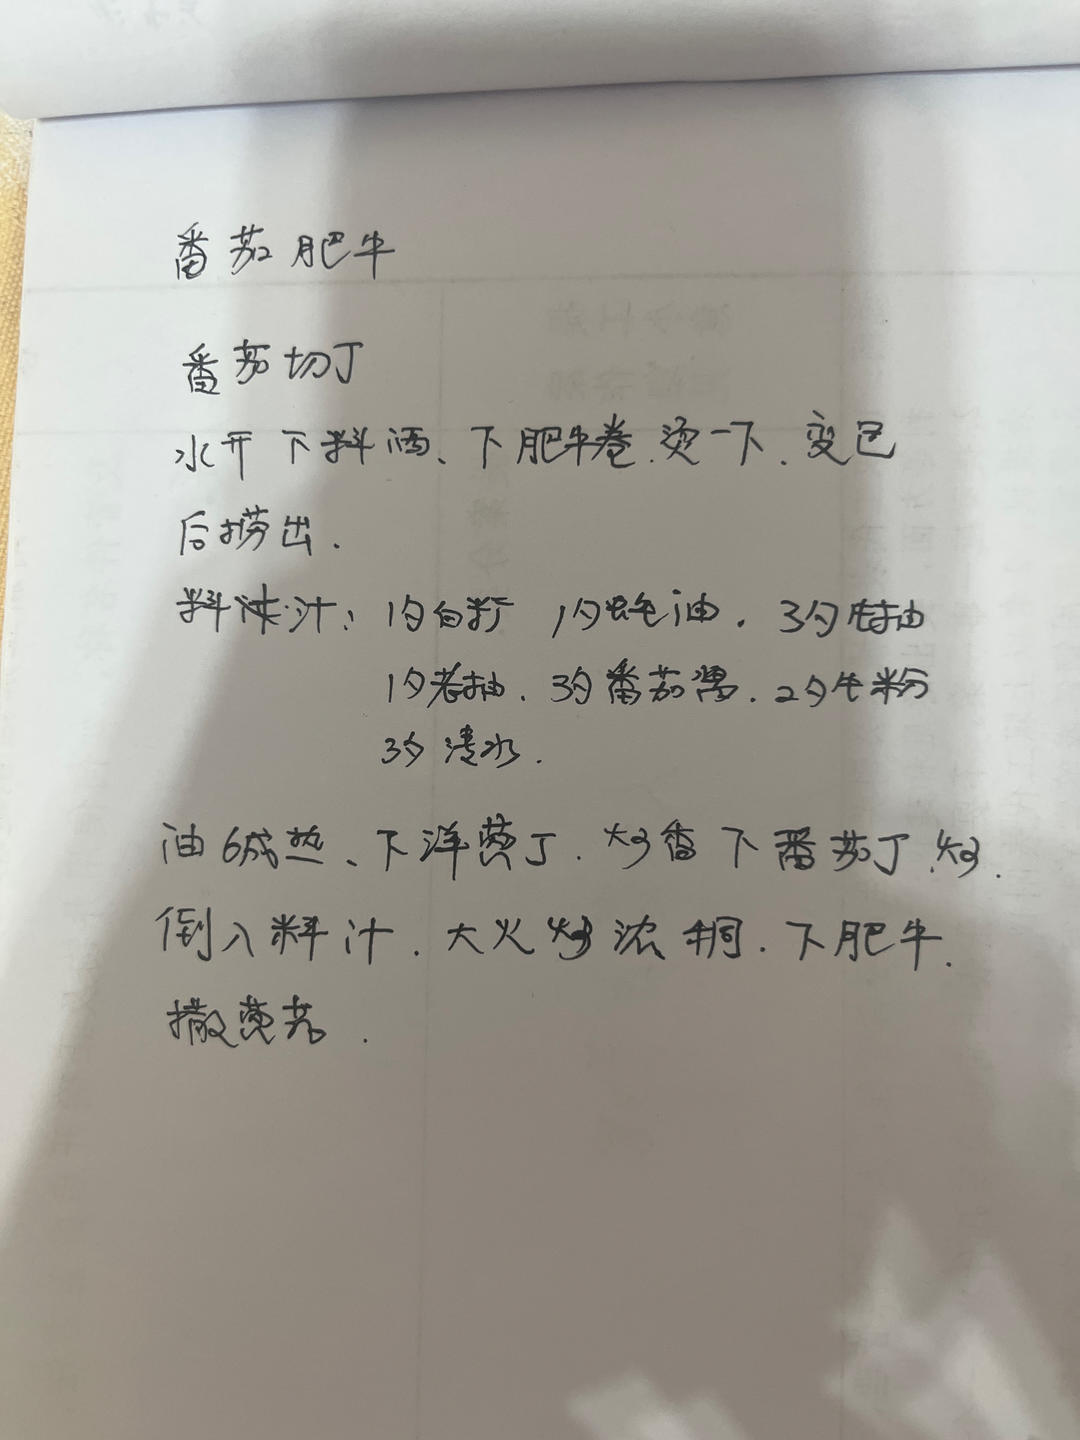 番茄肥牛
番茄切丁
水开下料酒、下肥牛卷.烫一下.变色
后捞出.
料汁: 1勺白 1勺蚝油. 3勺生抽
1勺老抽. 3勺番茄酱. 2勺生粉
3勺清水.
油6成热、下洋葱丁.炒香下番茄丁.炒.
倒入料汁.大火炒浓稠.下肥牛.
撒葱花.